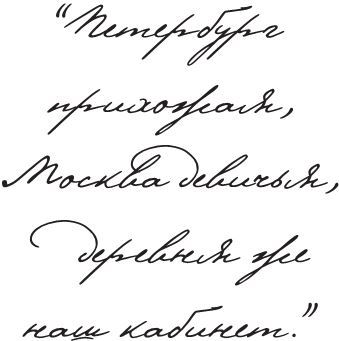 “Петербург
прихожая,
Москва девичья,
деревня же
наш кабинет.”